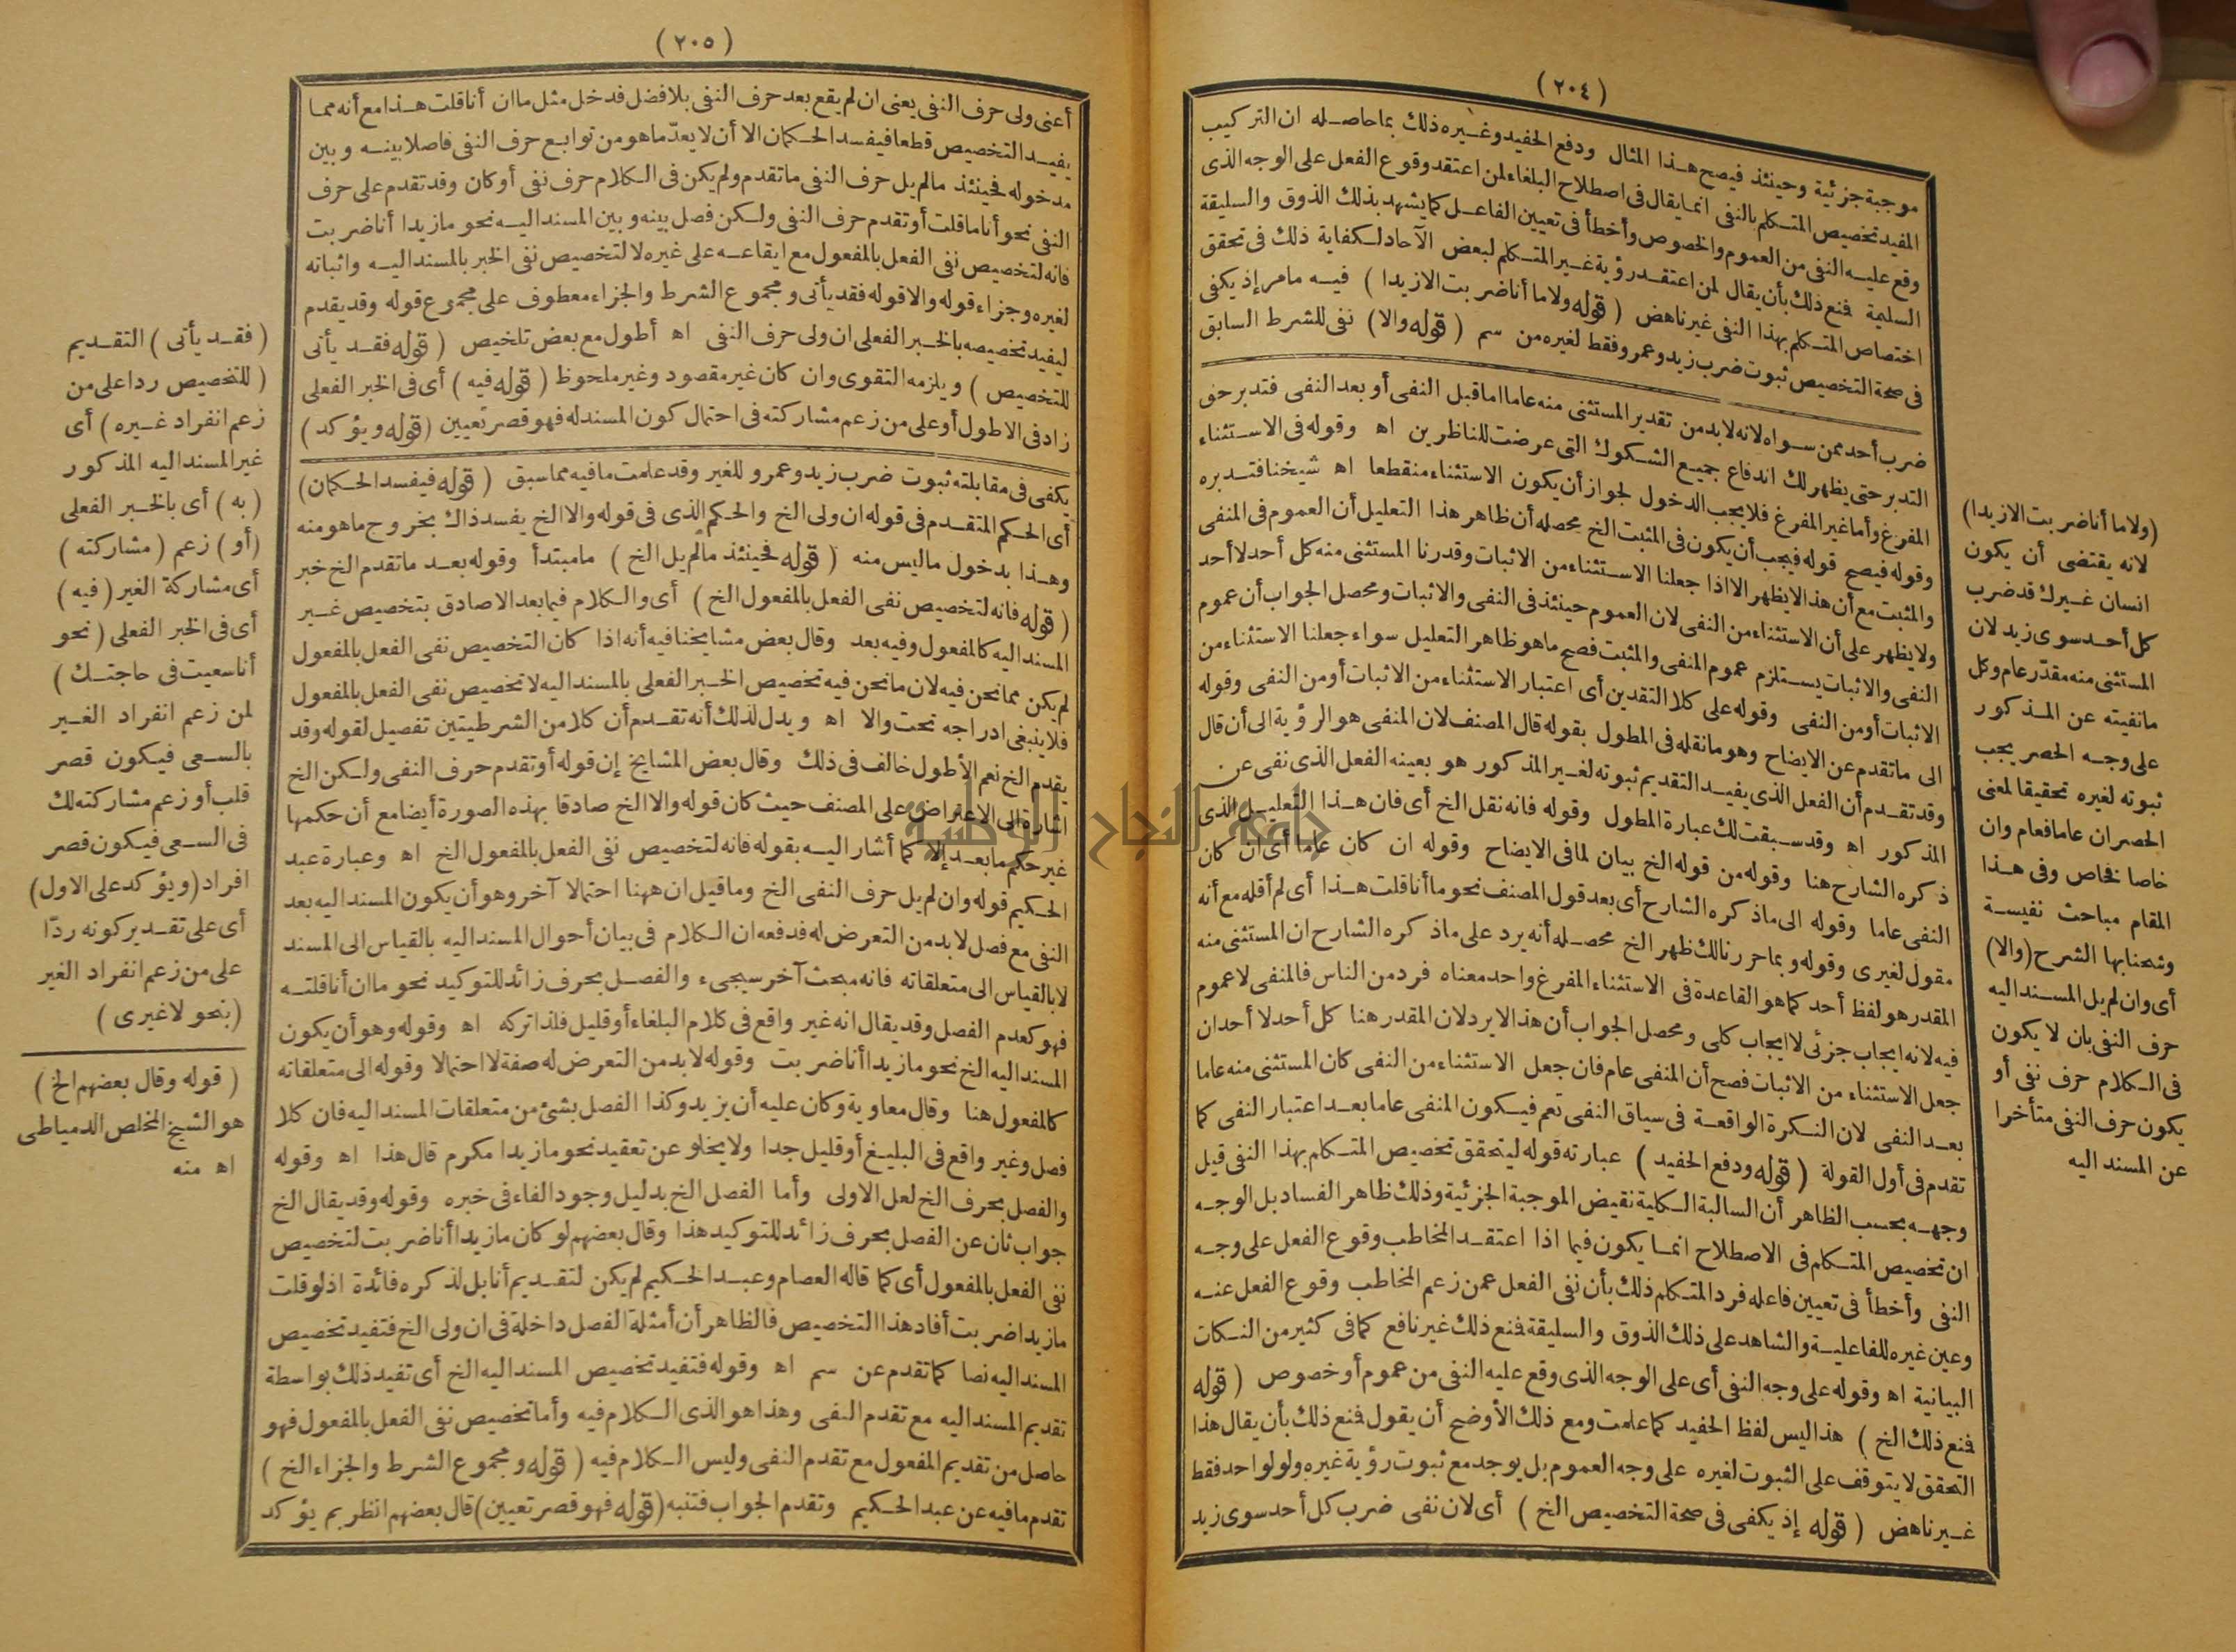 (٢٠٤)
موجبة جزئية وحينئذ فيصح هذا المثال ودفع الحفيد وغيره ذلك بما حاصله ان التركيب
المفيد تخصيص المتكلم بالنفى انما يقال فى اصطلاح البلغاء لمن اعتقد وقوع الفعل على الوجه الذى
وقع عليه النفى من العموم والخصوص وأخطأ فى تعيين الفاعل كما يشهد بذلك الذوق والسليقة
السليمة فنع ذلك بأن يقال لمن اعتقد رؤية غير المتكلم لبعض الآحاد لكفاية ذلك فى تحقق
اختصاص المتكلم بهذا النفى غير ناهض (قوله ولا ما أنا ضربت الا زيدا) فيه مامر إذ يكفى
فى صحة التخصيص ثبوت ضرب زيد وعمرو فقط لغيره من سم (قوله والا) نفى للشرط السابق
ضرب أحد ممن سواه لانه لا بد من تقدير المستثنى منه عاما اما قبل النفى أو بعد النفى فتدبر حق
التدبر حتى يظهر لك اندفاع جميع الشكوك التى عرضت للناظرين اه وقوله فى الاستثناء
المفرغ وأما غير المفرغ فلا يجب الدخول لجواز أن يكون الاستثناء منقطعا اه شيخنا فتدبره
وقوله فيصح قوله فيجب أن يكون فى المثبت الخ محصله أن ظاهر هذا التعليل أن العموم فى المنفى
والمثبت مع أن هذا لا يظهر الا اذا جعلنا الاستثناء من الاثبات وقدرنا المستثنى منه كل أحد لا أحد
ولا يظهر على أن الاستثناء من النفى لان العموم حينئذ فى النفى والاثبات ومحصل الجواب أن عموم
النفى والاثبات يستلزم عموم المنفى والمثبت فصح ما هو ظاهر التعليل سواء جعلنا الاستثناء من
الاثبات أو من النفى وقوله على كلا التقدين أى اعتبار الاستثناء من الاثبات أو من النفى وقوله
الى ما تقدم عن الايضاح وهو ما نقله فى المطول بقوله قال المصنف لان المنفى هو الرؤية الى أن قال
وقد تقدم أن الفعل الذى يفيد التقديم ثبوته لغير المذكور هو بعينه الفعل الذى نفى عن
المذكور اه وقد سبقت لك عبارة المطول وقوله فانه نقل الخ أى فان هذا التعليل الذى
ذكره الشارح هنا وقوله من قوله الخ بيان لما فى الايضاح وقوله ان كان عاما أى ان كان
النفى عاما وقوله الى ما ذكره الشارح أى بعد قول المصنف نحو ما أنا قلت هذا أى لم أقله مع أنه
مقول لغيرى وقوله وبما حررنا لك ظهر الخ محصله أنه يرد على ما ذكره الشارح ان المستثنى منه
المقدر هو لفظ أحد كما هو القاعدة فى الاستثناء المفرغ واحد معناه فرد من الناس فالمنفى لا عموم
فيه لانه ايجاب جزئى لا ايجاب كلى ومحصل الجواب أن هذا لا يرد لان المقدر هنا كل أحد لا أحد ان
جعل الاستثناء من الاثبات فصح أن المنفى عام فان جعل الاستثناء من النفى كان المستثنى منه عاما
بعد النفى لان النكرة الواقعة فى سياق النفى تعم فيكون المنفى عاما بعد اعتبار النفى كما
تقدم فى أول القولة (قوله ودفع الحفيد) عبارته قوله ليتحقق تخصيص المتكلم بهذا النفى قيل
وجهه بحسب الظاهر أن السالبة الكلية نقيض الموجبة الجزئية وذلك ظاهر الفساد بل الوجه
ان تخصيص المتكلم فى الاصطلاح انما يكون فيما اذا اعتقد المخاطب وقوع الفعل على وجه
النفى وأخطأ فى تعيين فاعله فرد المتكلم ذلك بأن نفى الفعل عمن زعم المخاطب وقوع الفعل عنه
وعين غيره للفاعلية والشاهد على ذلك الذوق والسليقة فنع ذلك غير نافع كما فى كثير من النكات
البيانية اه وقوله على وجه النفى أى على الوجه الذى وقع عليه النفى من عموم أو خصوص (قوله
فنع ذلك الخ) هذا ليس لفظ الحفيد كما علمت ومع ذلك الأوضح أن يقول فنع ذلك بأن يقال هذا
التحقق لا يتوقف على الثبوت لغيره على وجه العموم بل يوجد مع ثبوت رؤية غيره ولو لواحد فقط
غير ناهض (قوله إذ يكفى فى صحة التخصيص الخ) أى لان نفى ضرب كل أحد سوى زيد
(ولا ما أنا ضربت الا زيدا)
لانه يقتضى أن يكون
انسان غيرك قد ضرب
كل أحد سوى زيد لان
المستثنى منه مقدّر عام وكل
ما نفيته عن المذكور
على وجه الحصر يجب
ثبوته لغيره تحقيقا لمعنى
الحصر ان عاما فعام وان
خاصا فخاص وفى هذا
المقام مباحث نفيسة
وشحنا بها الشرح (والا)
أى وان لم يل المسند اليه
حرف النفى بان لا يكون
فى الكلام حرف نفى أو
يكون حرف النفى متأخرا
عن المسند اليه
(٢٠٥)
أعنى ولى حرف النفى يعنى ان لم يقع بعد حرف النفى بلا فصل فدخل مثل ما ان أنا قلت هذا مع أنه مما
يفيد التخصيص قطعا فيفسد الحكمان الا أن لا يعدّ ما هو من توابع حرف النفى فاصلا بينه وبين
مدخوله فحينئذ ما لم يل حرف النفى ما تقدم ولم يكن فى الكلام حرف نفى أو كان وقد تقدم على حرف
النفى نحو أنا ما قلت أو تقدم حرف النفى ولكن فصل بينه وبين المسند اليه نحو ما زيدا أنا ضربت
فانه لتخصيص نفى الفعل بالمفعول مع ايقاعه على غيره لا لتخصيص نفى الخبر بالمسند اليه واثباته
لغيره وجزاء قوله والا قوله فقد يأتى ومجموع الشرط والجزاء معطوف على مجموع قوله وقد يقدم
ليفيد تخصيصه بالخبر الفعلى ان ولى حرف النفى اه أطول مع بعض تلخيص (قوله فقد يأتى
للتخصيص) ويلزمه التقوى وان كان غير مقصود وغير ملحوظ (قوله فيه) أى فى الخبر الفعلى
زاد فى الاطول أو على من زعم مشاركته فى احتمال كون المسند له فهو قصر تعيين (قوله ويؤكد)
يكفى فى مقابلته ثبوت ضرب زيد وعمرو للغير وقد علمت ما فيه مما سبق (قوله فيفسد الحكمان)
أى الحكم المتقدم فى قوله ان ولى الخ والحكم الذى فى قوله والا الخ يفسد ذاك بخروج ما هو منه
وهذا بدخول ما ليس منه (قوله فحينئذ ما لم يل الخ) ما مبتدأ وقوله بعد ما تقدم الخ خبر
(قوله فانه لتخصيص نفى الفعل بالمفعول الخ) أى والكلام فيما بعد الا صادق بتخصيص غير
المسند اليه كالمفعول وفيه بعد وقال بعض مشايخنا فيه أنه اذا كان التخصيص نفى الفعل بالمفعول
لم يكن مما نحن فيه لان ما نحن فيه تخصيص الخبر الفعلى بالمسند اليه لا تخصيص نفى الفعل بالمفعول
فلا ينبغى ادراجه تحت والا اه ويدل لذلك أنه تقدم أن كلا من الشرطيتين تفصيل لقوله وقد
يقدم الخ نعم الأطول خالف فى ذلك وقال بعض المشايخ إن قوله أو تقدم حرف النفى ولكن الخ
اشارة الى الاعتراض على المصنف حيث كان قوله والا الخ صادقا بهذه الصورة أيضا مع أن حكمها
غير حكم ما بعد إلا كما أشار اليه بقوله فانه لتخصيص نفى الفعل بالمفعول الخ اه وعبارة عبد
الحكيم قوله وان لم يل حرف النفى الخ وما قيل ان ههنا احتمالا آخر وهو أن يكون المسند اليه بعد
النفى مع فصل لا بد من التعرض له فدفعه ان الكلام فى بيان أحوال المسند اليه بالقياس الى المسند
لا بالقياس الى متعلقاته فانه مبحث آخر سيجىء والفصل بحرف زائد للتوكيد نحو ما ان أنا قلته
فهو كعدم الفصل وقد يقال انه غير واقع فى كلام البلغاء أو قليل فلذا تركه اه وقوله وهو أن يكون
المسند اليه الخ نحو ما زيدا أنا ضربت وقوله لا بد من التعرض له صفة لاحتمالا وقوله الى متعلقاته
كالمفعول هنا وقال معاوية وكان عليه أن يزيد وكذا الفصل بشئ من متعلقات المسند اليه فان كلا
فصل وغير واقع فى البليغ أو قليل جدا ولا يخلو عن تعقيد نحو ما زيدا مكرم قال هذا اه وقوله
والفصل بحرف الخ لعل الاولى وأما الفصل الخ بدليل وجود الفاء فى خبره وقوله وقد يقال الخ
جواب ثان عن الفصل بحرف زائد للتوكيد هذا وقال بعضهم لو كان ما زيدا أنا ضربت لتخصيص
نفى الفعل بالمفعول أى كما قاله العصام وعبد الحكيم لم يكن لتقديم أنا بل لذكره فائدة اذ لو قلت
ما زيدا ضربت أفاد هذا التخصيص فالظاهر أن أمثلة الفصل داخلة فى ان ولى الخ فتفيد تخصيص
المسند اليه نصا كما تقدم عن سم اه وقوله فتفيد تخصيص المسند اليه الخ أى تفيد ذلك بواسطة
تقديم المسند اليه مع تقدم النفى وهذا هو الذى الكلام فيه وأما تخصيص نفى الفعل بالمفعول فهو
حاصل من تقديم المفعول مع تقدم النفى وليس الكلام فيه (قوله ومجموع الشرط والجزاء الخ)
تقدم ما فيه عن عبد الحكيم وتقدم الجواب فتنبه (قوله فهو قصر تعيين) قال بعضهم انظر بم يؤكد
(فقد يأتى) التقديم
(للتخصيص ردا على من
زعم انفراد غيره) أى
غير المسند اليه المذكور
(به) أى بالخبر الفعلى
(أو) زعم (مشاركته)
أى مشاركة الغير (فيه)
أى فى الخبر الفعلى (نحو
أنا سعيت فى حاجتك)
لمن زعم انفراد الغير
بالسعى فيكون قصر
قلب أو زعم مشاركته لك
فى السعى فيكون قصر
افراد (ويؤكد على الاول)
أى على تقدير كونه ردّا
على من زعم انفراد الغير
(بنحو لا غيرى)
(قوله وقال بعضهم الخ)
هو الشيخ المخلص الدمياطى
اه منه
جامعة النجاح الوطنية